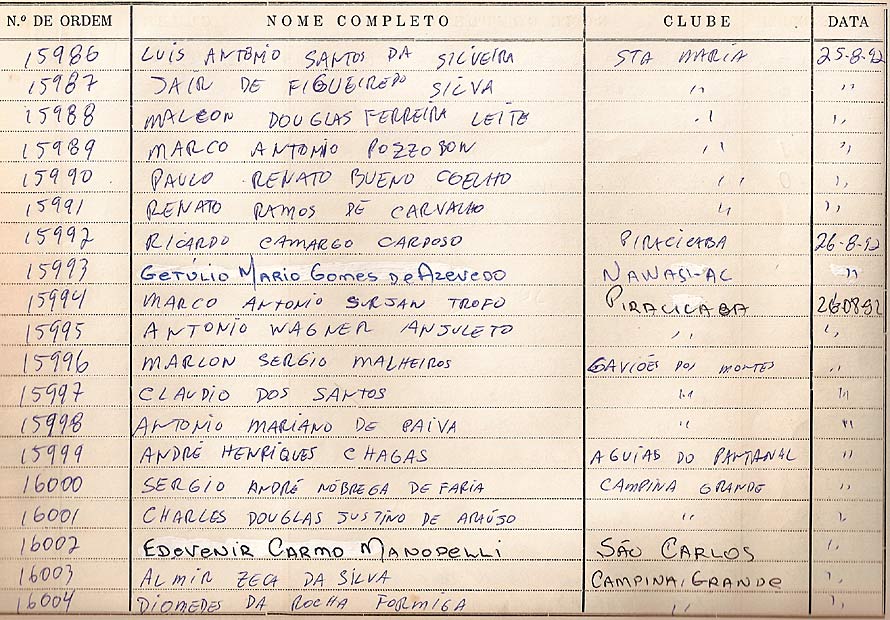 N.º DE ORDEM NOME COMPLETO CLUBE DATA
15986 LUIS ANTONIO SANTOS DA SILVEIRA STA MARIA 25-8-92
15987 JAIR DE FIGUEIREDO SILVA " "
15988 MALCON DOUGLAS FERREIRA LEITE " "
15989 MARCO ANTONIO POZZOBON " "
15990 PAULO RENATO BUENO COELHO " "
15991 RENATO RAMOS DE CARVALHO " "
15992 RICARDO CAMARGO CARDOSO PIRACICABA 26-8-92
15993 GETÚLIO MARIO GOMES DE AZEVEDO "
15994 MARCO ANTONIO SURJAN TROFO PIRACICABA 26-08-92
15995 ANTONIO WAGNER ANJULETO " "
15996 MARLON SERGIO MALHEIROS GAVIÕES DOS MONTES "
15997 CLAUDIO DOS SANTOS " "
15998 ANTONIO MARIANO DE PAIVA " "
15999 ANDRÉ HENRIQUES CHAGAS AGUIAS DO PANTANAL "
16000 SERGIO ANDRÉ NÓBREGA DE FARIA CAMPINA GRANDE "
16001 CHARLES DOUGLAS JUSTINO DE ARAÚJO " "
16002 EDOVENIR CARMO MANOPELLI SÃO CARLOS "
16003 ALMIR ZECA DA SILVA CAMPINA GRANDE "
16004 DIOMEDES DA ROCHA FORMIGA " "